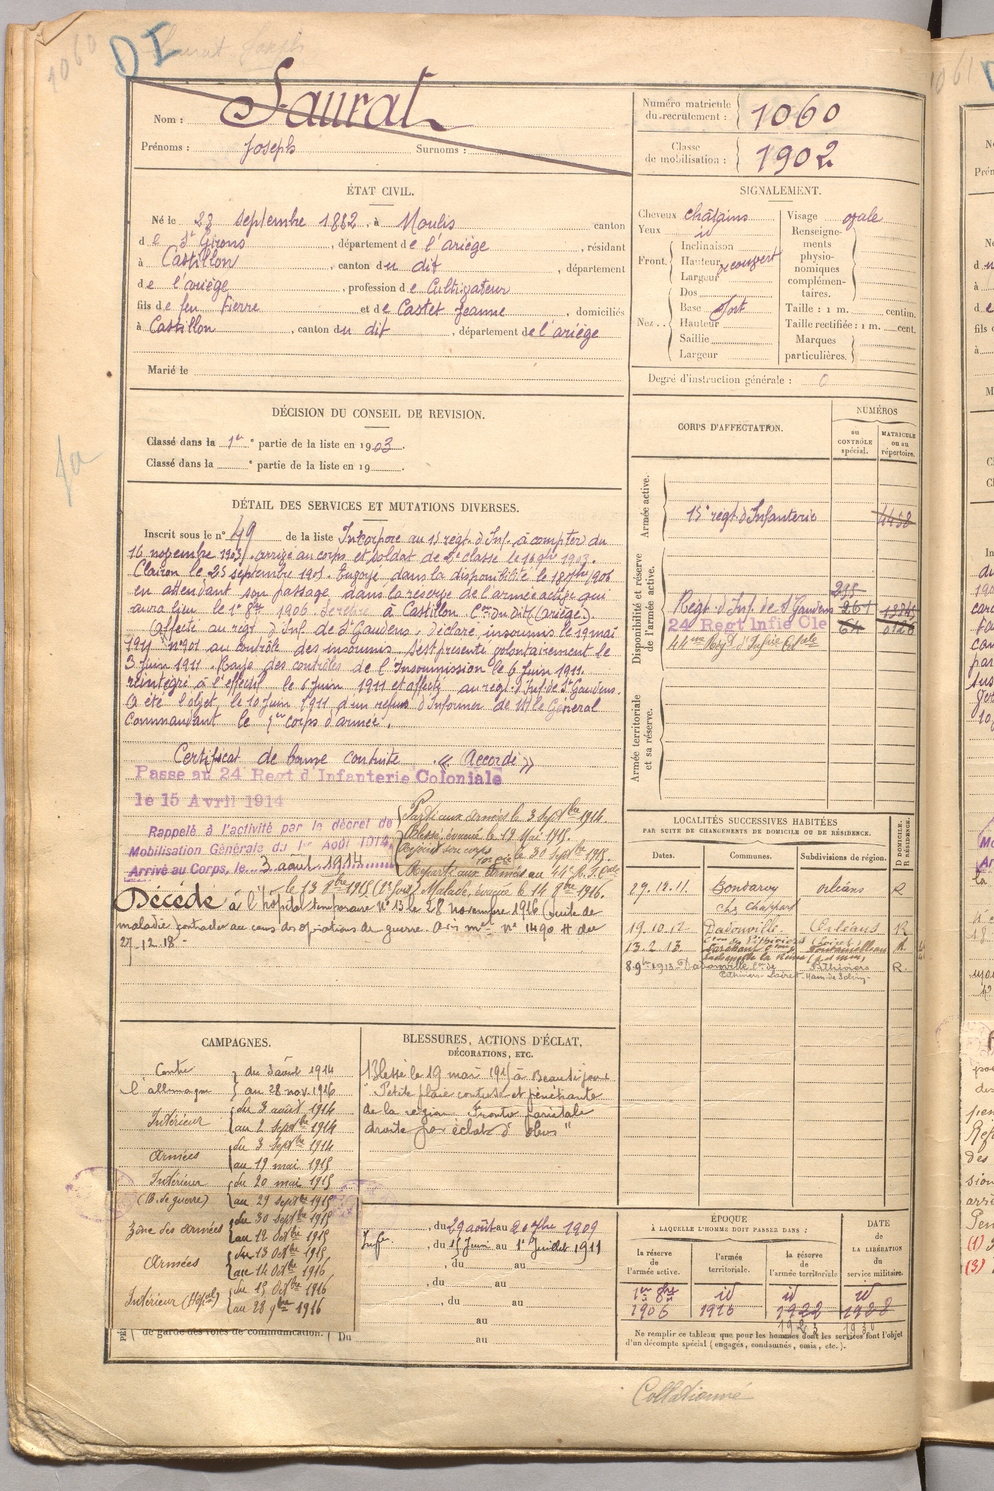 1060
DI
Saurat Joseph
Nom : Saurat
Prénoms : Joseph Surnoms :
Numéro matricule du recrutement : 1060
Classe de mobilisation : 1902
ÉTAT CIVIL.
Né le 23 septembre 1882, à Moulis canton
de St Girons, département de l'ariège, résidant
à Castillon, canton du dit, département
de l'ariège, profession de Cultivateur
fils de feu Pierre et de Castet Jeanne, domiciliés
à Castillon, canton du dit, département de l'ariège
Marié le
SIGNALEMENT.
Cheveux chatains
Yeux
Front. Inclinaison
Hauteur
Largeur
recouvert
Nez. Dos
Base fort
Hauteur
Saillie
Largeur
Visage ovale
Renseignements physionomiques complémentaires.
Taille : 1 m. centim.
Taille rectifiée : 1 m. cent.
Marques particulières.
Degré d'instruction générale : 0
DÉCISION DU CONSEIL DE REVISION.
Classé dans la 1re partie de la liste en 1903.
Classé dans la partie de la liste en 19
DÉTAIL DES SERVICES ET MUTATIONS DIVERSES.
Inscrit sous le n° 49 de la liste Incorporé au 15 régt. d'Inf. à compter du
16 novembre 1903, arrivé au corps et soldat de 2e classe le 16 9bre 1903.
Clairon le 23 septembre 1905. Envoyé dans la disponibilité le 18 7bre 1906
en attendant son passage dans la réserve de l'armée active qui
aura lieu le 1er 8bre 1906. Se retire à Castillon Con Du Dit (Ariège).
Affecté au régt d'Inf. de St Gaudens. Déclaré insoumis le 19 mai
1911 n° 901 au contrôle des insoumis. S'est présenté volontairement le
3 Juin 1911. Rayé des contrôles de l'Insoumission le 6 Juin 1911.
réintégré à l'effectif le 6 Juin 1911 et affecté au régt d'Inf. de St Gaudens.
A été l'objet, le 10 Juin 1911 d'un refus d'Informer de Mr le Général
Commandant le corps d'armée.
Certificat de bonne conduite « Accordé »
Passé au 24 Regt d'Infanterie Coloniale
le 15 Avril 1914
Rappelé à l'activité par le décret de
Mobilisation Générale du 1er Août 1914
Arrivé au Corps, le 3 août 1914
Parti aux armées le 3 Septbre 1914.
Blessé, évacué le 19 Mai 1915.
Rejoint son corps le 30 Septbre 1915.
Reparti aux Armées au 44e R. I. Cole
le 13 8bre 1915 Malade, évacué le 14 8bre 1916.
Décédé à l'hôpital temporaire N° 13 le 28 novembre 1916 (suite de
maladie) contractée au cours des opérations de guerre. Avis mel n° 1490 # du
27.12.18.
CORPS D'AFFECTATION.
NUMÉROS
au CONTRÔLE spécial.
MATRICULE ou au répertoire.
Armée active.
15e régt. d'Infanterie
Disponibilité et réserve de l'armée active.
Régt. d'Inf. de St Gaudens
24 Regt Infie Cle
44me Régt d'Infie Cole
Armée territoriale et sa réserve.
LOCALITÉS SUCCESSIVES HABITÉES
PAR SUITE DE CHANGEMENTS DE DOMICILE OU DE RÉSIDENCE.
Dates. Communes. Subdivisions de région. D DOMICILE. R RÉSIDENCE.
29.12.11. Bondaroy orléans R
chs Chappart
19.10.12 Dadonville Orléans R
13.2.13 Fontainebleau R
8 9bre 1913 Dadonville R.
CAMPAGNES.
Contre l'allemagne du 3 août 1914
au 28 nov. 1916
Intérieur du 3 août 1914
au 2 Septbre 1914
Armées du 3 Septbre 1914
au 19 mai 1915
Intérieur (B. de guerre) du 20 mai 1915
au 29 septbre 1915
Zone des Armées du 30 Septbre 1915
au 12 Octbre 1915
Armées du 13 Octbre 1915
au 14 Octbre 1916
Intérieur (Hôpital) du 15 Octbre 1916
au 28 9bre 1916
de garde des voies de communication. Du
BLESSURES, ACTIONS D'ÉCLAT,
DÉCORATIONS, ETC.
Blessé le 19 mai 1915 à Beauséjour
"Petite plaie contuse et pénétrante
de la région Fronto pariétale
droite par éclat d'obus"
du 29 août au 20 7bre 1909
Inf. du 15 Juin au 1er Juillet 1911
du au
du au
du au
au
au
ÉPOQUE
À LAQUELLE L'HOMME DOIT PASSER DANS :
la réserve de l'armée active.
l'armée territoriale.
la réserve de l'armée territoriale
DATE de LA LIBÉRATION du service militaire.
1er 8bre id id id
1906 1916 1922 1928
Ne remplir ce tableau que pour les hommes dont les services font l'objet
d'un décompte spécial (engagés, condamnés, omis, etc.).
Collationné